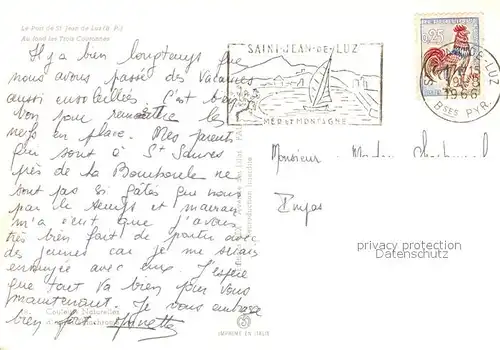 Le Port de St Jean de Luz (B. P.)
Au fond les Trois Couronnes
Il y a bien longtemps que
nous avons passé des vacances
aussi ensoleillées. C'est bien
bon pour remettre les
nerfs en place. Mes parents
qui sont à St Sauves
près de la Bourboule ne
sont pas si gâtés que nous
par le temps et maman
m'a écrit que j'avais
très bien fait de partir avec
des jeunes car je me serais
ennuyée avec eux. J'espère
que tout va bien pour vous
maintenant. Je vous embrasse
bien fort
Couleurs Naturelles
IMPRIMÉ EN ITALIE
Reproduction interdite
SAINT-JEAN-DE-LUZ
MER ET MONTAGNE
0,25
1966
Bses PYR.
Monsieur
privacy protection
Datenschutz